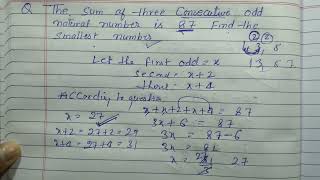 Q The sum of three Consecutive odd
natural number is 87 Find the
smallest number
Let the first odd = x
second = x+2
third = x+4
According to question
x+x+2+x+4 = 87
3x+6 = 87
3x = 87-6
3x = 81
x = 27
x = 27
x+2 = 27+2 = 29
x+4 = 27+4 = 31